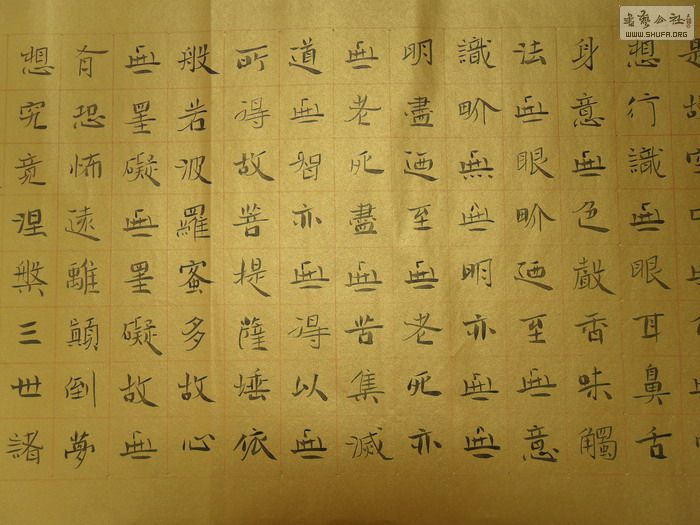 想行識無眼耳鼻舌
身意無色聲香味觸
法無眼畍迺至無意
識畍無無明亦無無
明盡迺至無老死亦
無老死盡無苦集滅
道無智亦無得以無
所得故菩提薩埵依
般若波羅蜜多故心
無罣礙無罣礙故無
有恐怖遠離顛倒夢
想究竟涅槃三世諸
書藝公社
WWW.SHUFA.ORG